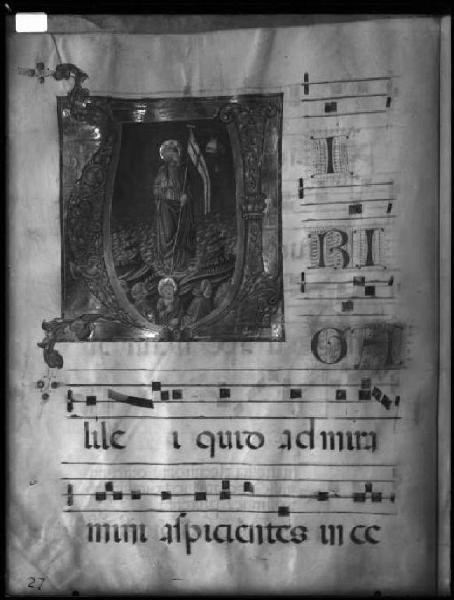 V I
RI
GA
lile i quid admira
mini aspicientes in ce
27